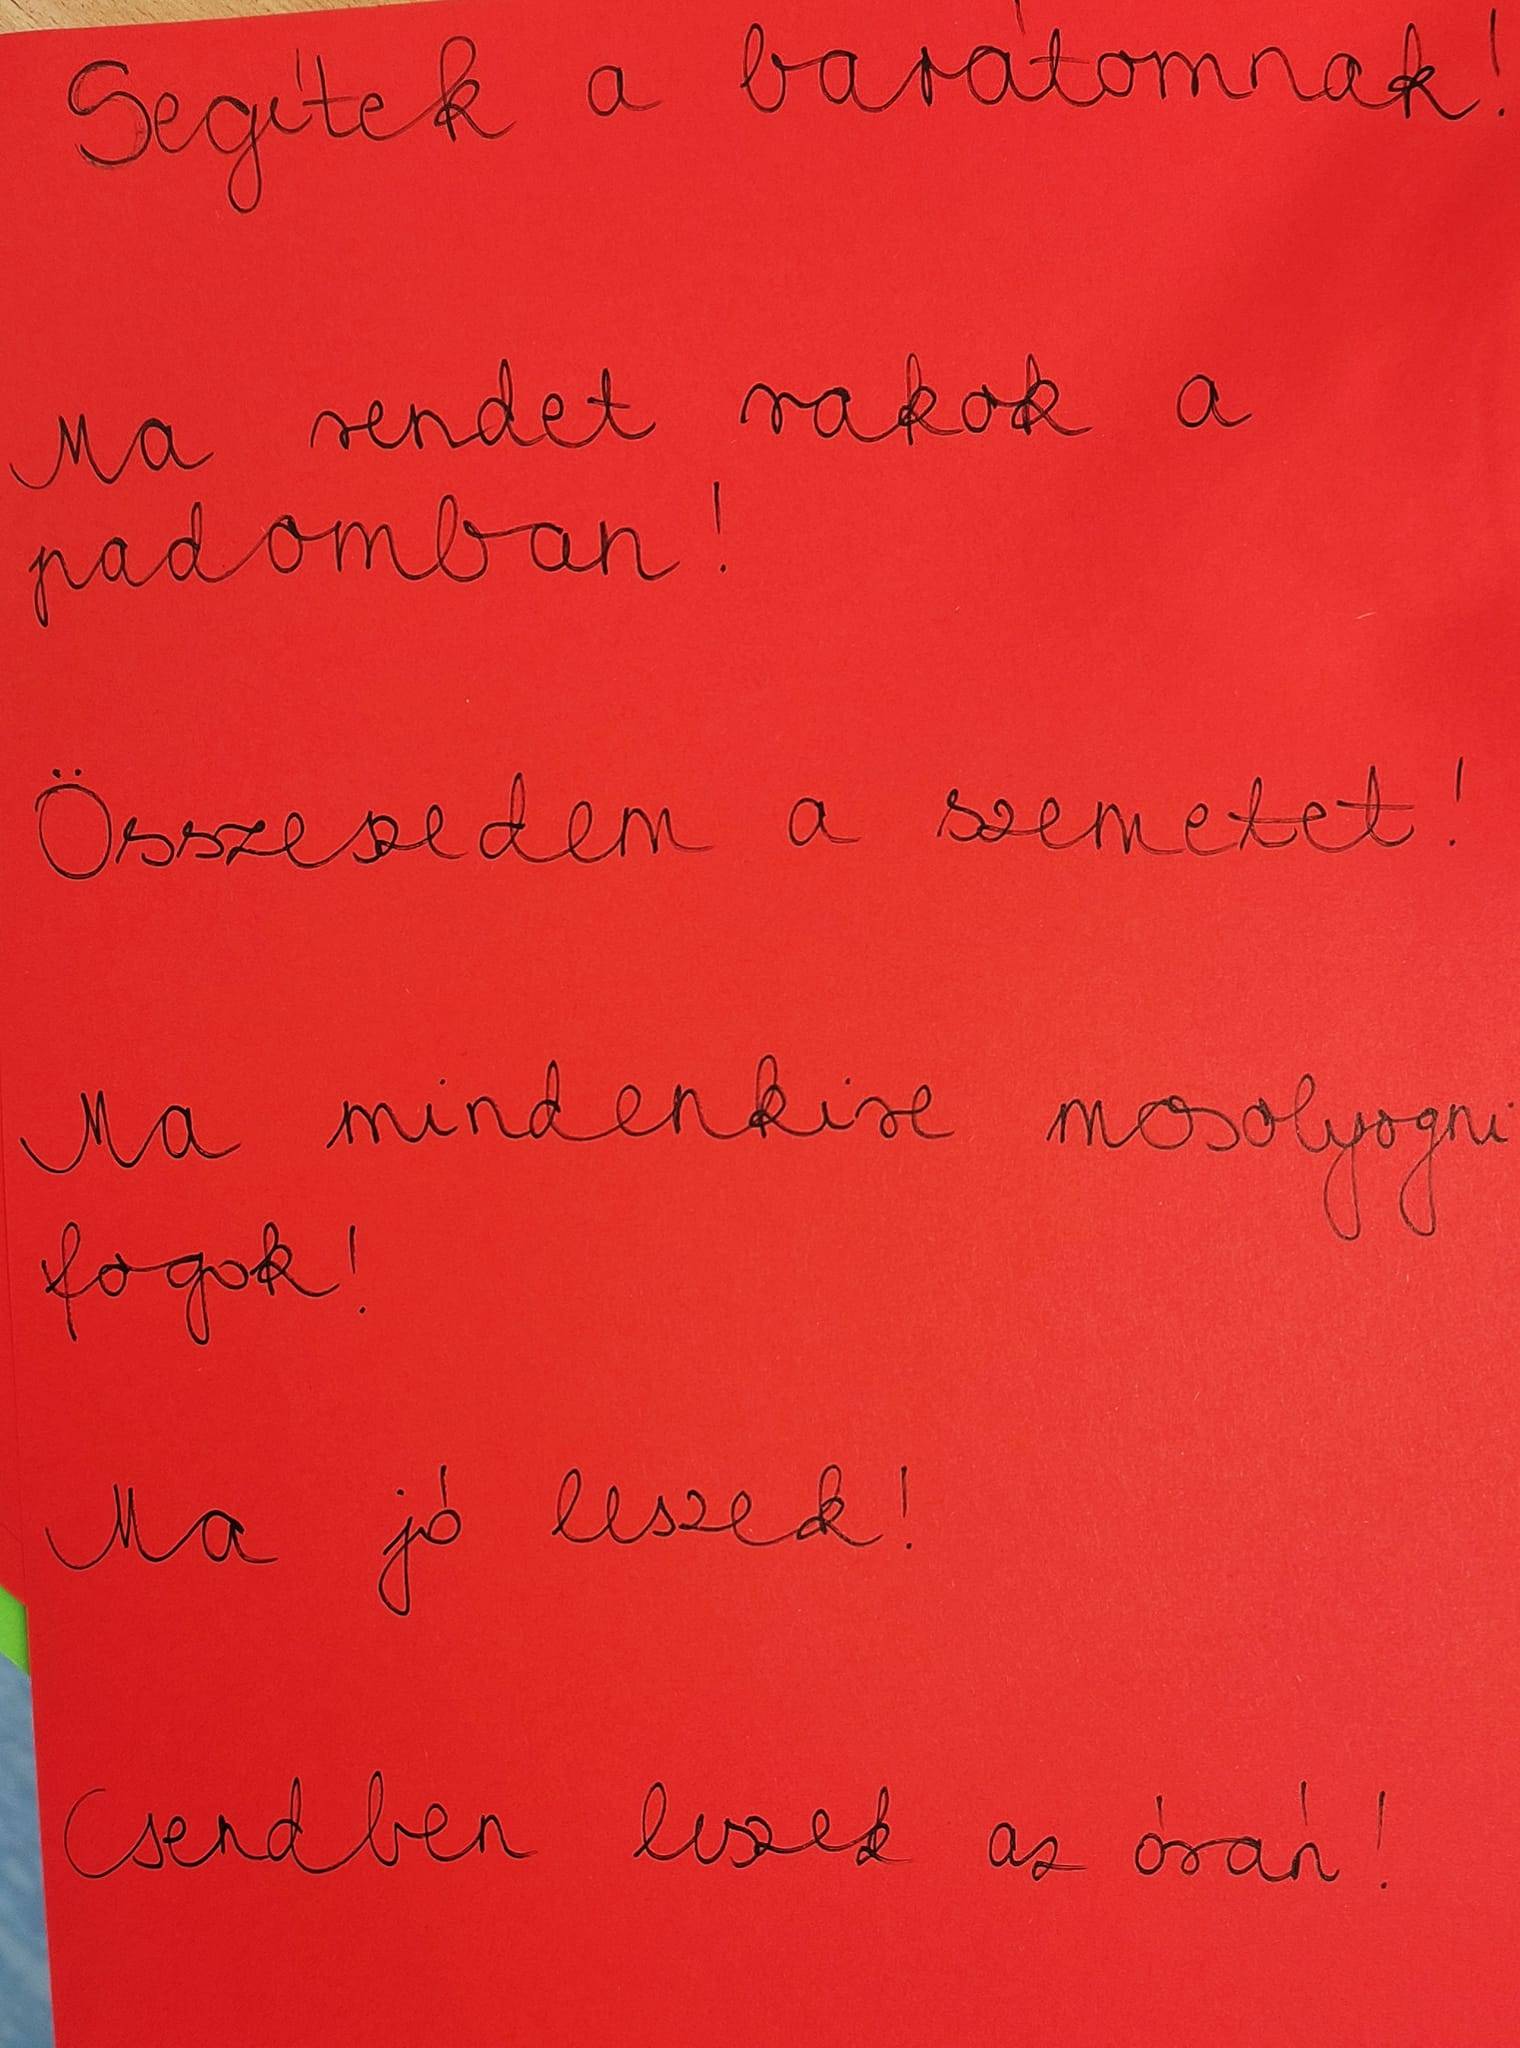 Segítek a barátomnak!
Ma rendet rakok a
padomban!
Összeszedem a szemetet!
Ma mindenkire mosolyogni
fogok!
Ma jó leszek!
Csendben leszek az órán!